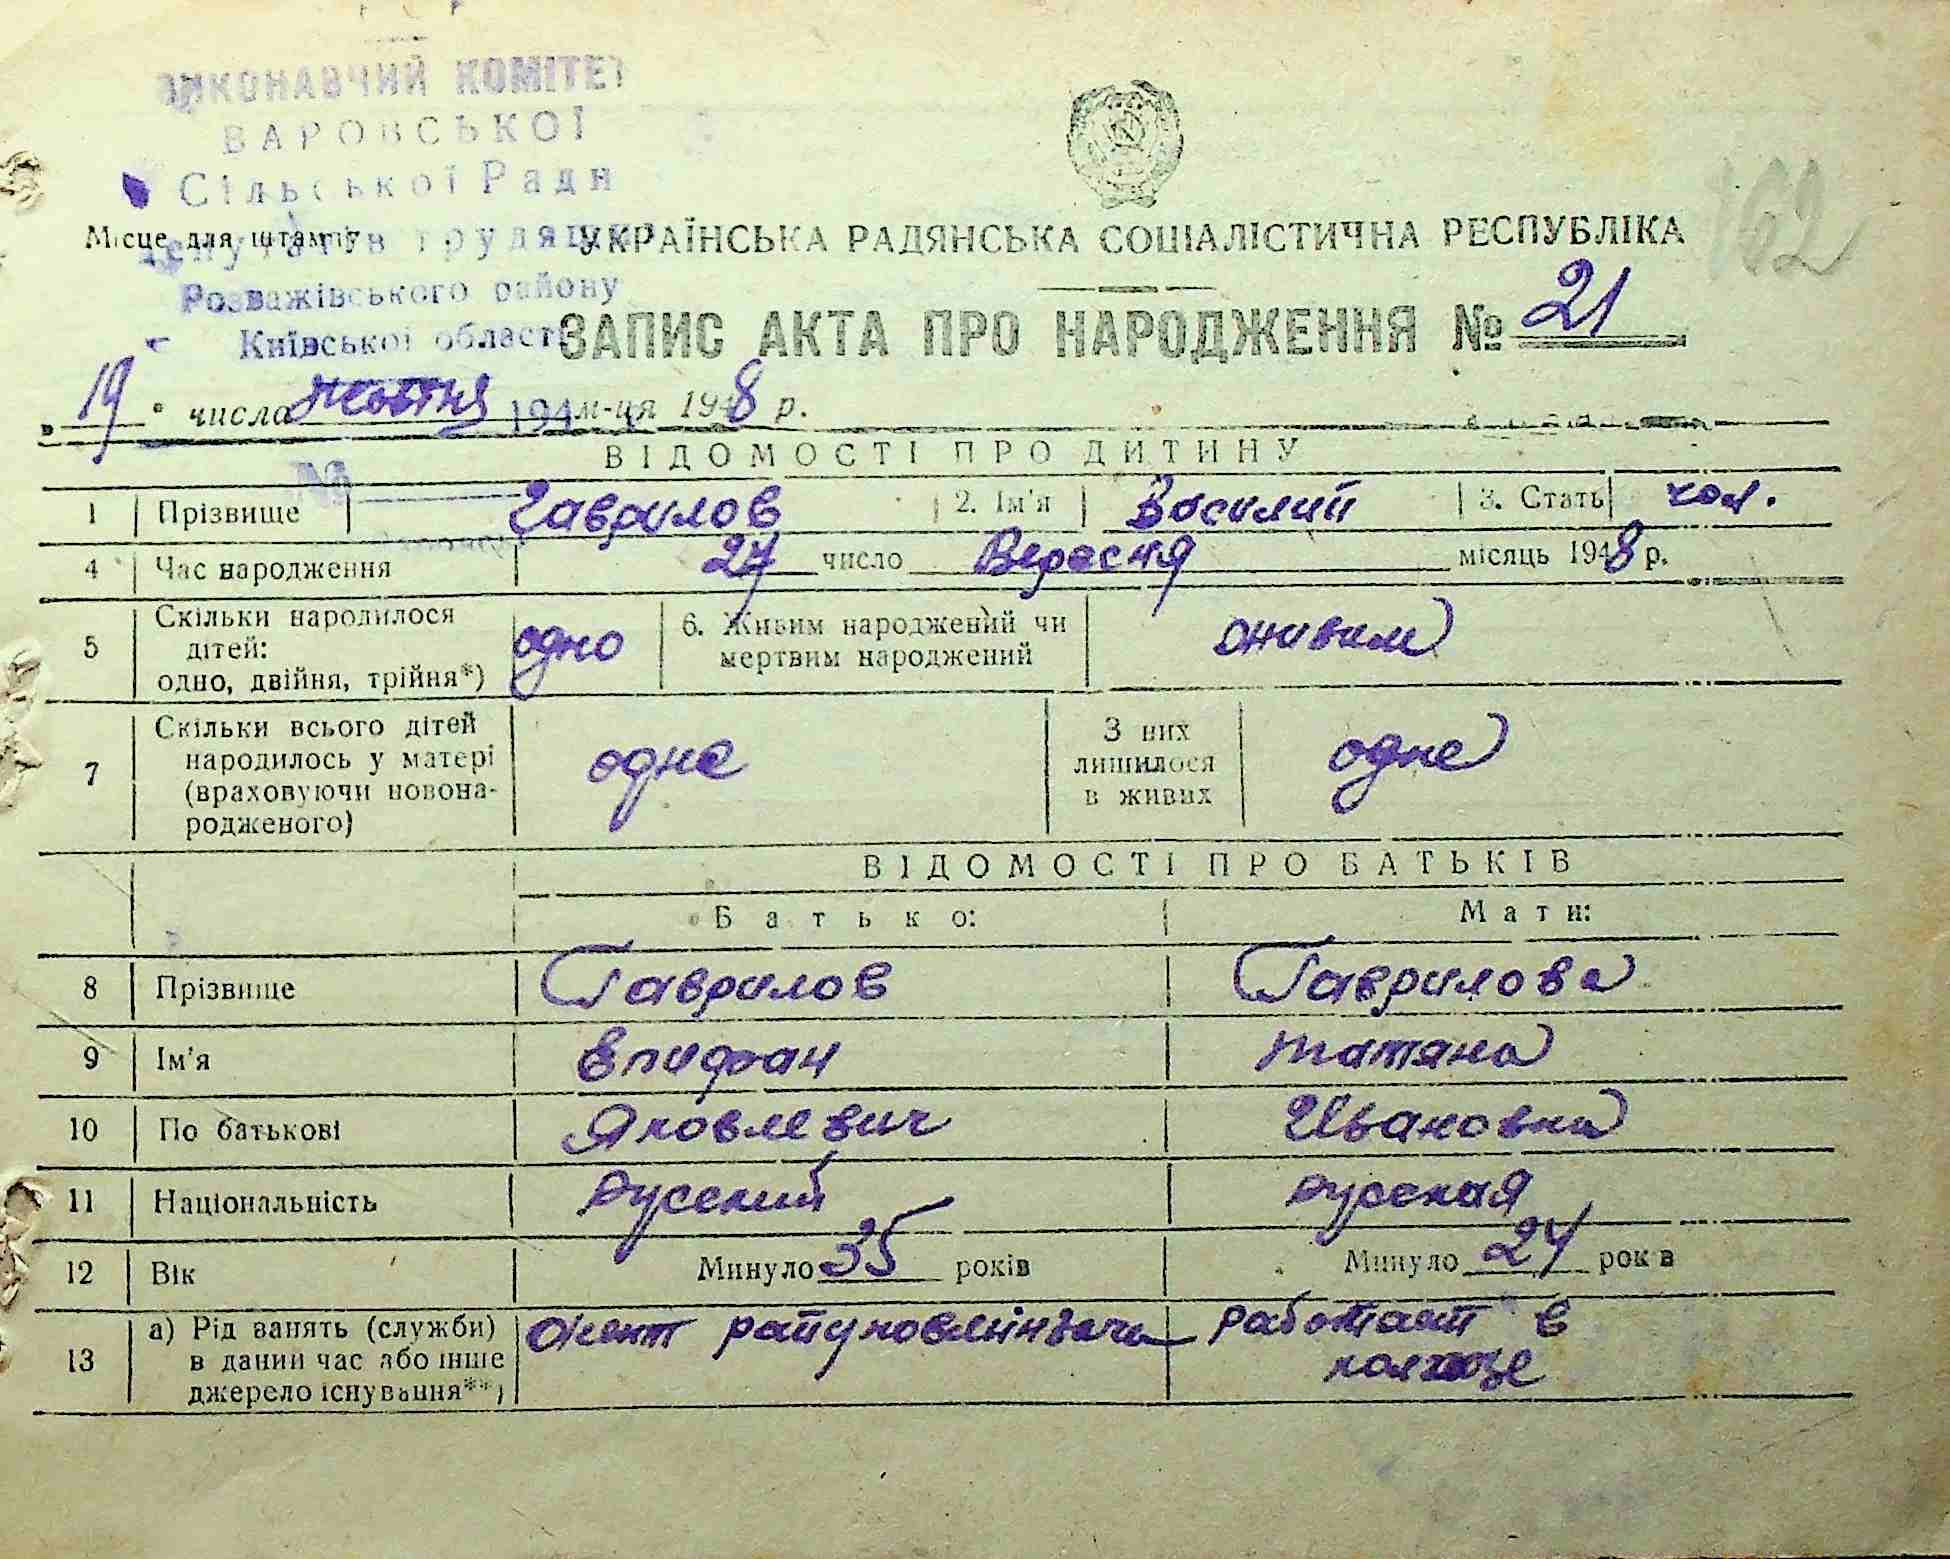 ВИКОНАВЧИЙ КОМІТЕТ
ВАРОВСЬКОЇ
Сільської Ради
депутатів трудящих
Розважівського району
Київської області
162
Місце для штампу
УКРАЇНСЬКА РАДЯНСЬКА СОЦІАЛІСТИЧНА РЕСПУБЛІКА
ЗАПИС АКТА ПРО НАРОДЖЕННЯ № 21
„ 19 " числа жовтня м-ця 1948 р.
194
№
ВІДОМОСТІ ПРО ДИТИНУ
1 Прізвище Гаврилов 2. Ім'я Василий 3. Стать чол.
4 Час народження 27 число Вересня місяць 1948 р.
5 Скільки народилося дітей: одно, двійня, трійня*) одно 6. Живим народжений чи мертвим народжений живим
7 Скільки всього дітей народилось у матері (враховуючи новонародженого) одне З них лишилося в живих одне
ВІДОМОСТІ ПРО БАТЬКІВ
Батько: Мати:
8 Прізвище Гаврилов Гаврилова
9 Ім'я Епифан Татяна
10 По батькові Яковлевич Ивановна
11 Національність русский русская
12 Вік Минуло 35 років Минуло 24 років
13 а) Рід занять (служби) в даний час або інше джерело існування**) работает в колхозе